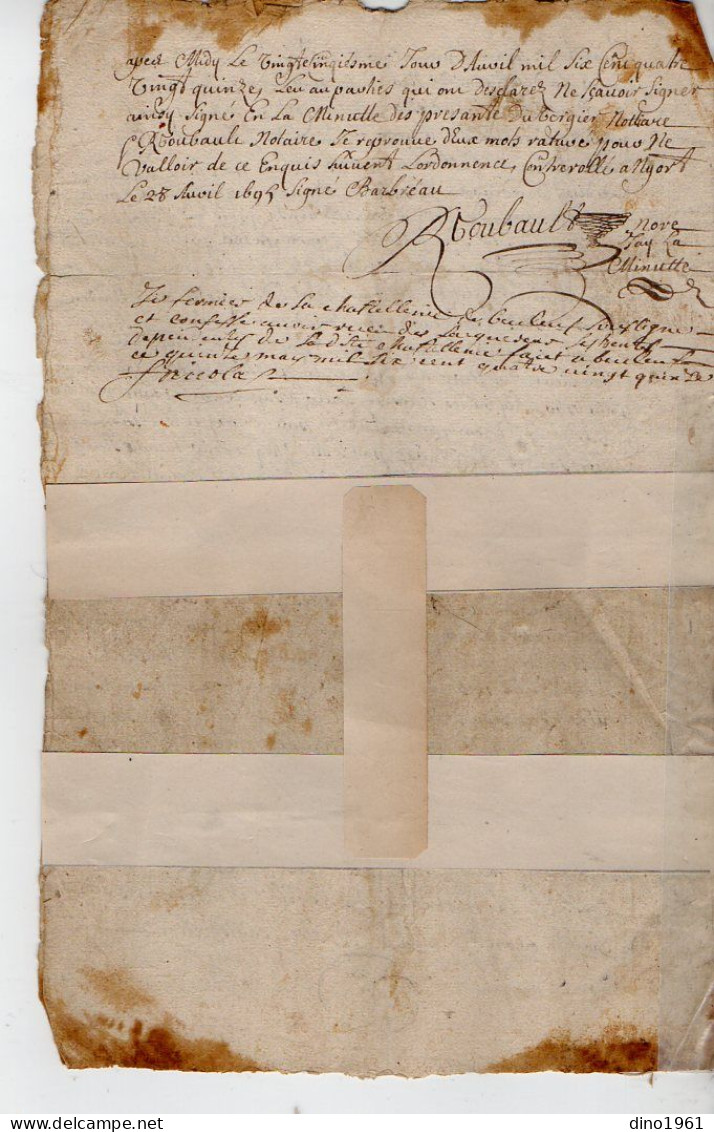 apres Midy Le Vingt Cinqiesme Jour D'Avril mil Six Cent quatre
Vingt quinze, Leu au parties qui ont Desclarez Ne Sçavoir Signer
ainsy Signé En La Minutte des presante Du Vergier Nottaire
& Roubault Notaire Je reprouve deux mots rature pour Ne
Valloir de ce Enquis suivent Lordonnence, Controrollé a Nyort
Le 28 Avril 1695 Signé Barbréau
Roubault Nore
Jay La
Minutte
fermier de la chastellenie de
et confesse avoir receu des
de la dite chastellenie fait a
ce quinze mars mil six cent quatre vingt quinze
dino1961